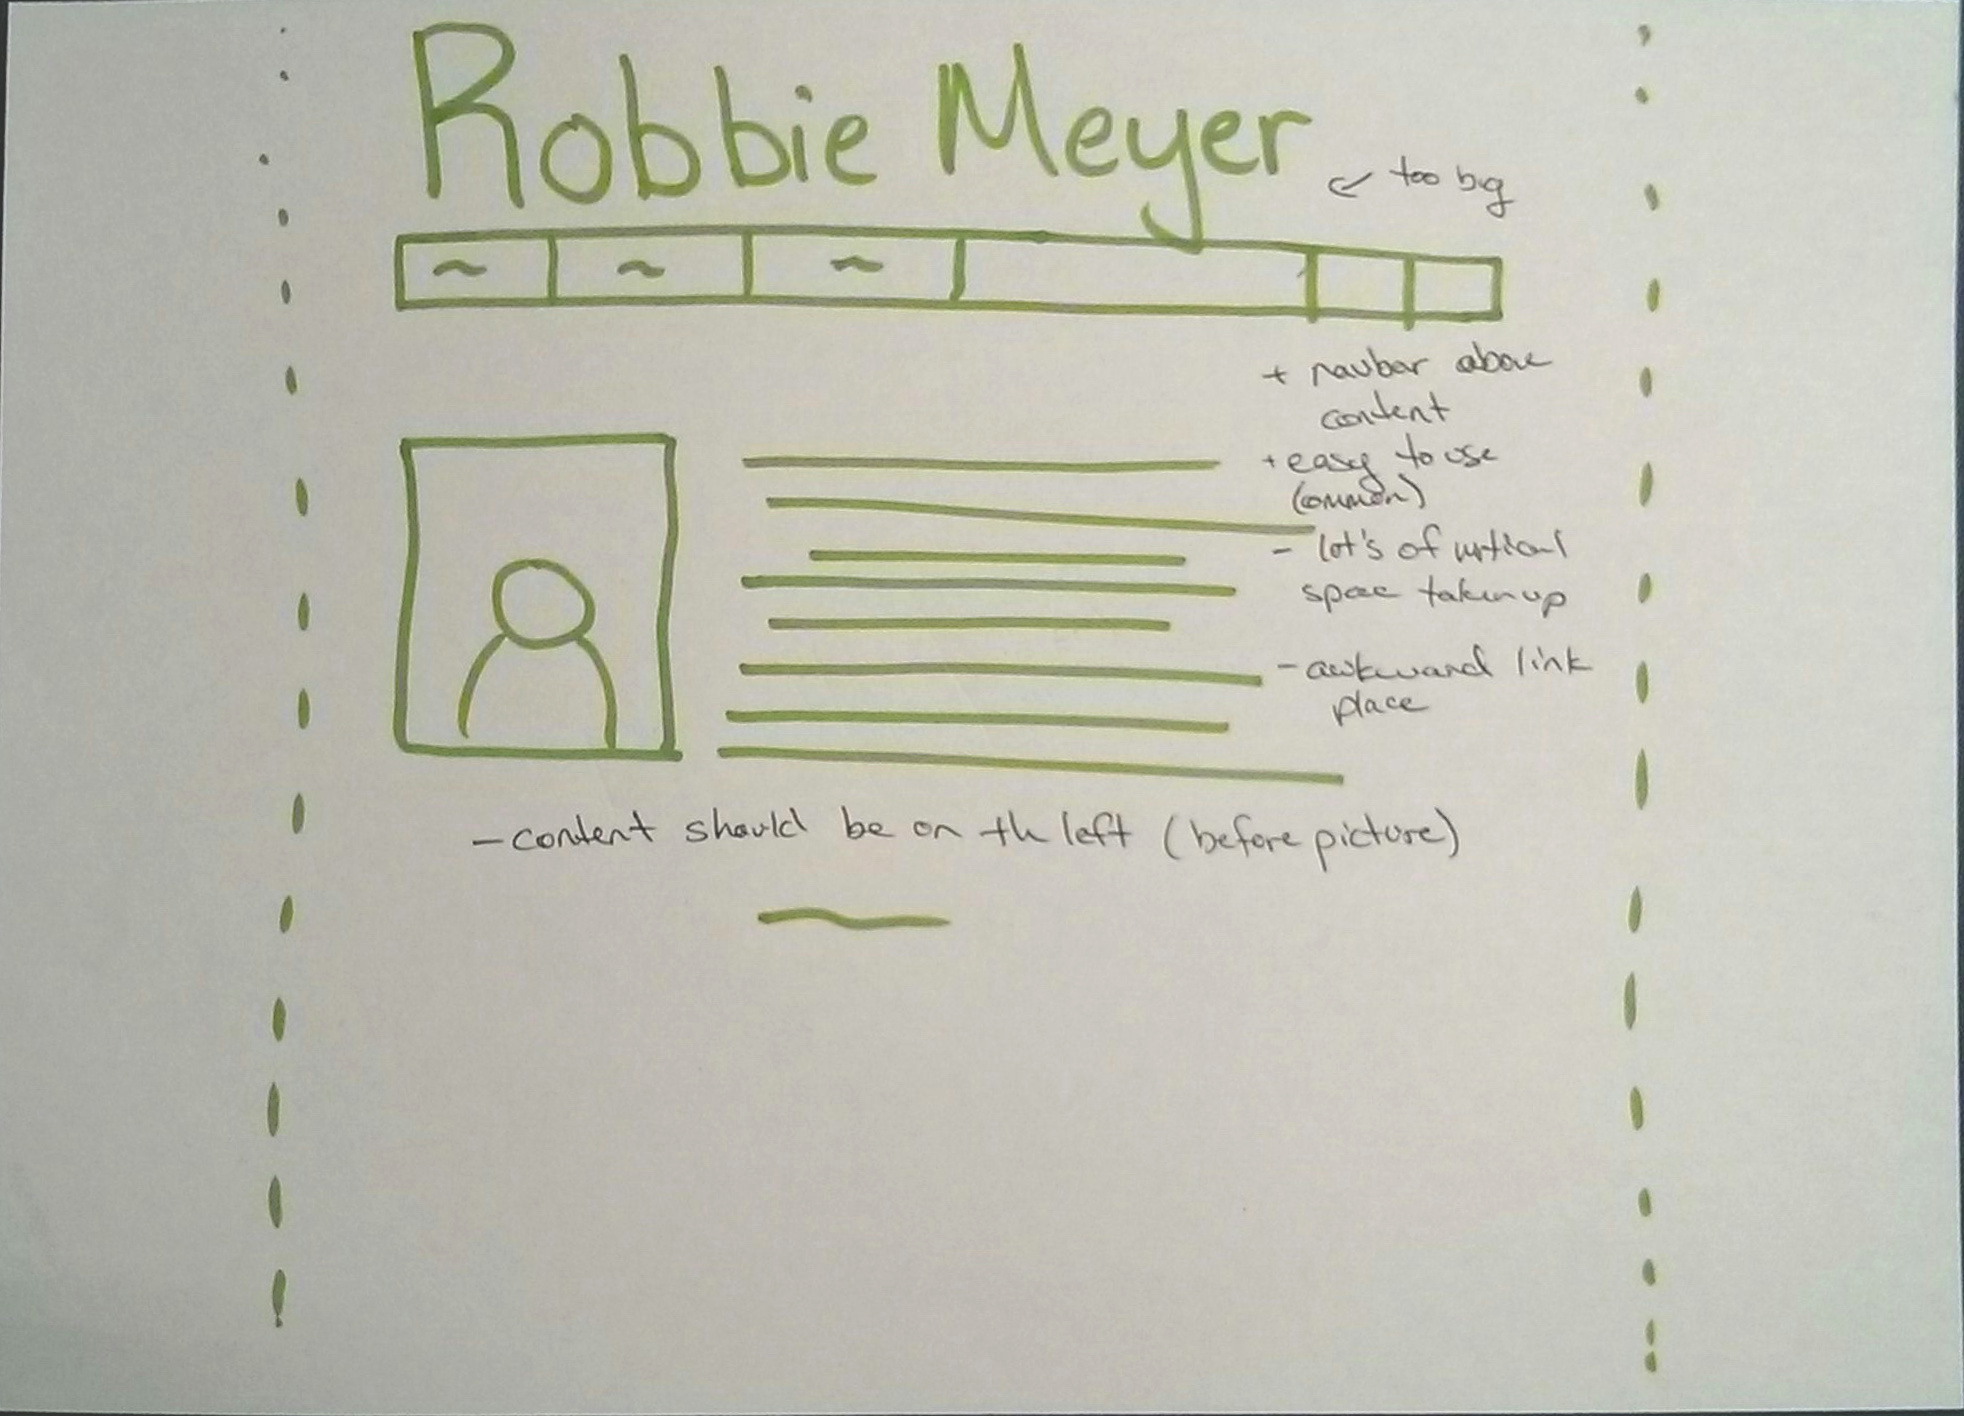 Robbie Meyer
too big
~ ~ ~
+ navbar above
content
+ easy to use
(common)
- lot's of vertical
space taken up
- awkward link
place
- content should be on th left (before picture)